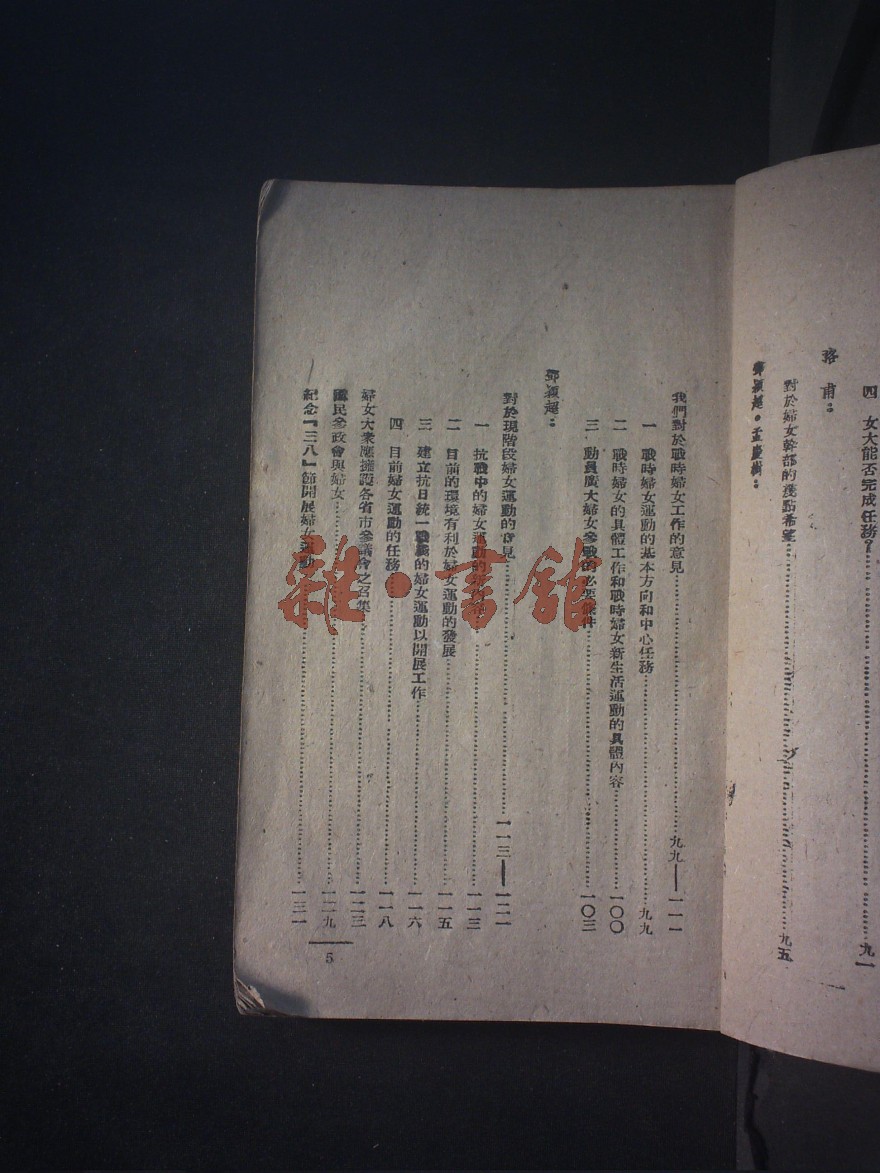 四 女大能否完成任務？……九一
珞甫：
對於婦女幹部的幾點希望……九五
鄧穎超·孟慶樹：
我們對於戰時婦女工作的意見……九九——一一一
一 戰時婦女運動的基本方向和中心任務……九九
二 戰時婦女的具體工作和戰時婦女新生活運動的具體內容……一〇〇
三 動員廣大婦女參戰的必要條件……一〇三
鄧穎超：
對於現階段婦女運動的意見……一一三——一二一
一 抗戰中的婦女運動的……一一三
二 目前的環境有利於婦女運動的發展……一一五
三 建立抗日統一戰線的婦女運動以開展工作……一一六
四 目前婦女運動的任務……一一八
婦女大衆應擁護各省市參議會之召集……一二三
國民參政會與婦女……一二九
紀念『三八』節開展婦女運動……一三一
5
雜·書館